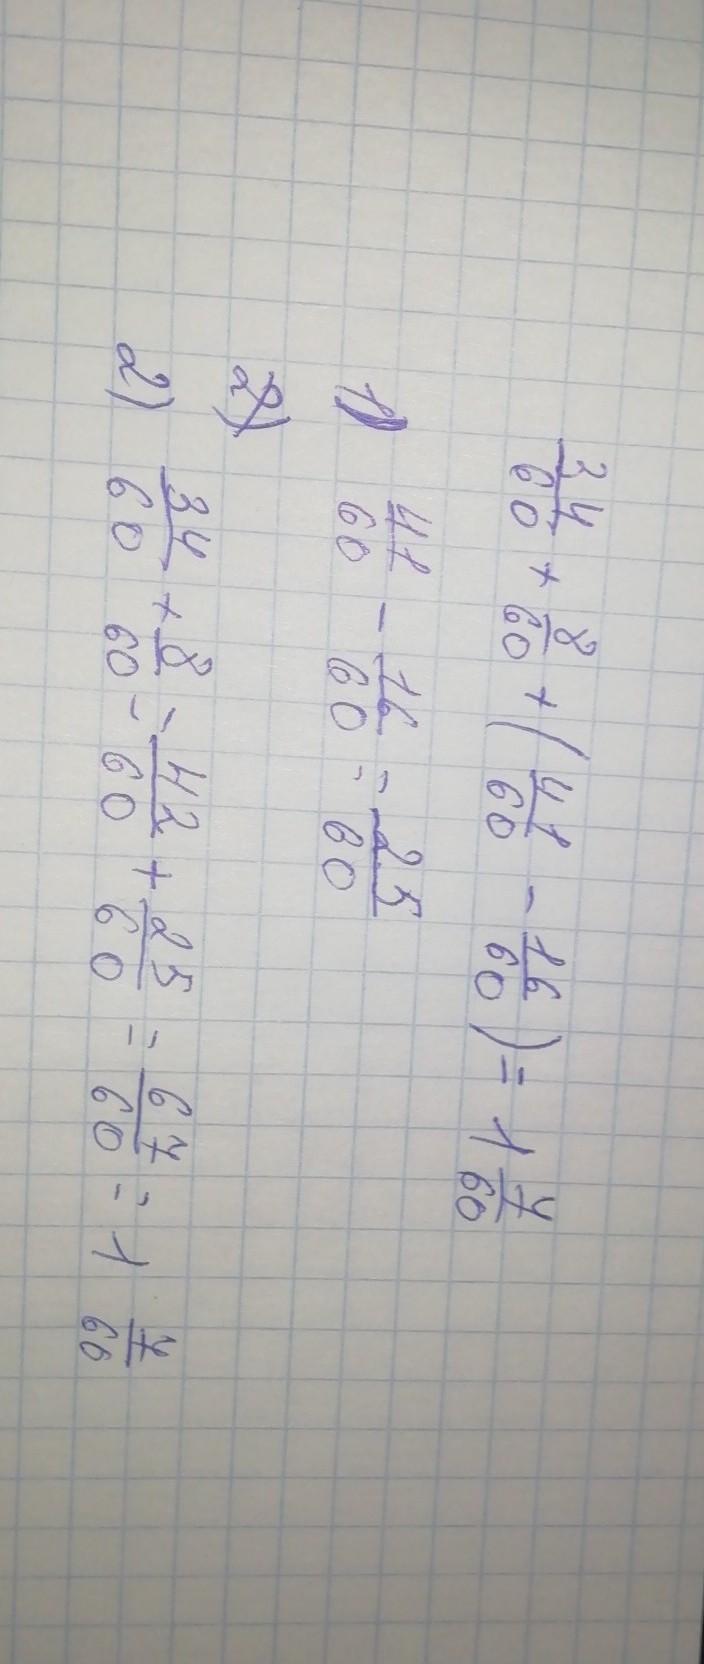 34/60 + 8/60 + (41/60 - 16/60) = 1 7/60
1) 41/60 - 16/60 = 25/60
2)
2) 34/60 + 8/60 = 42/60 + 25/60 = 67/60 = 1 7/60